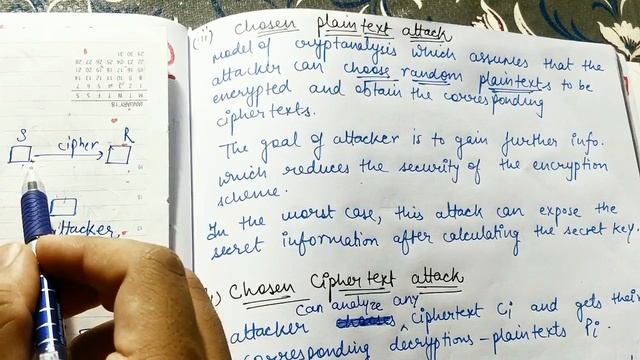 (iii) Chosen plaintext attack
model of cryptanalysis which assumes that the
attacker can choose random plaintexts to be
encrypted and obtain the corresponding
ciphertexts.
The goal of attacker is to gain further info.
which reduces the security of the encryption
scheme.
In the worst case, this attack can expose the
secret information after calculating the secret key.
Chosen Ciphertext attack
can analyze any
attacker ciphertext Ci and gets their
corresponding decryptions - plaintexts Pi.
S cipher R
attacker
JANUARY'18